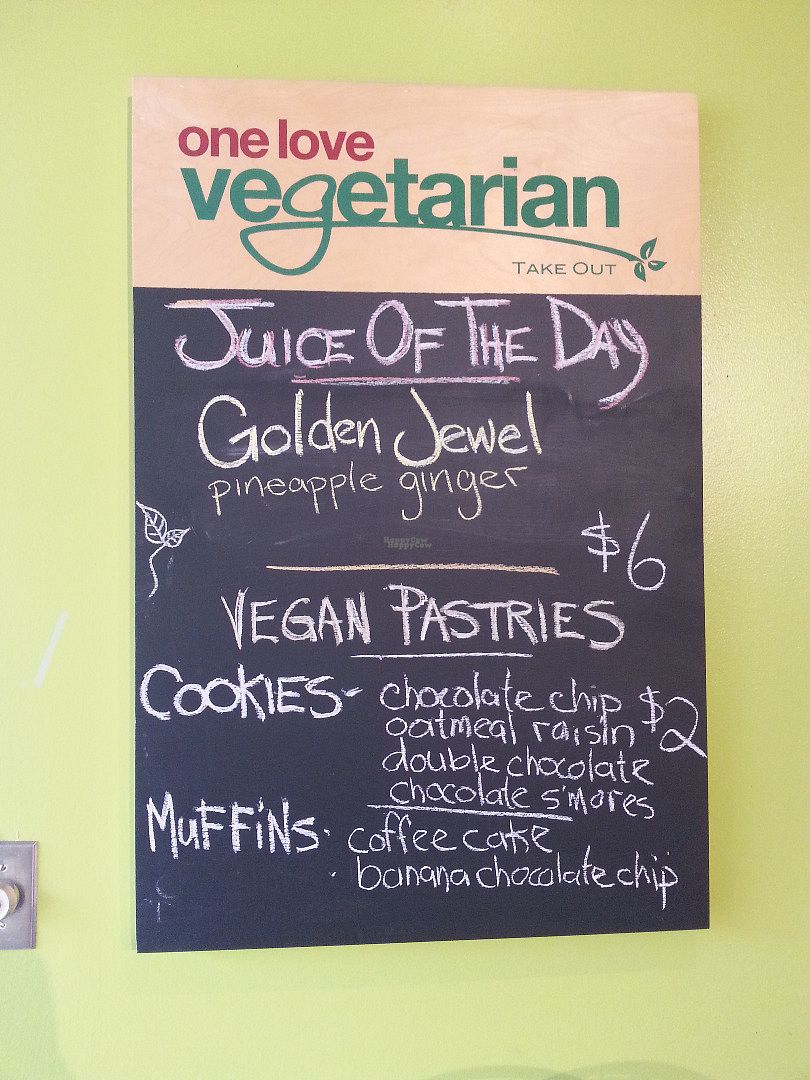 one love
vegetarian
TAKE OUT
JUICE OF THE DAY
Golden Jewel
pineapple ginger
$6
HappyCow
HappyCow
VEGAN PASTRIES
COOKIES - chocolate chip $2
oatmeal raisin
double chocolate
chocolate s'mores
MUFFiNS · coffee cake
· banana chocolate chip